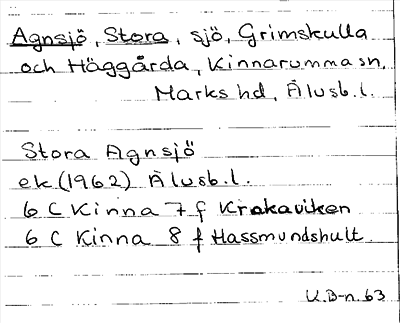 Agnsjö, Stora, sjö, Grimskulla
och Häggårda, Kinnarumma sn,
Marks hd, Älvsb. l.
Stora Agnsjö
ek (1962) Älvsb. l.
6 C Kinna 7 f Krokaviken
6 C Kinna 8 f Hassmundshult
U.B-n. 63